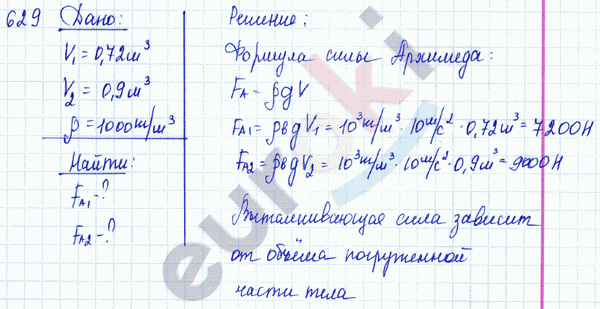 629 Дано:
V₁ = 0,72м³
V₂ = 0,9м³
ρ = 1000кг/м³
Найти:
F_A1 - ?
F_A2 - ?
Решение:
Формула силы Архимеда:
F_A = ρgV
F_A1 = ρвgV₁ = 10³кг/м³ · 10м/с² · 0,72м³ = 7200Н
F_A2 = ρвgV₂ = 10³кг/м³ · 10м/с² · 0,9м³ = 9000Н
Выталкивающая сила зависит
от объёма погруженной
части тела
euroki